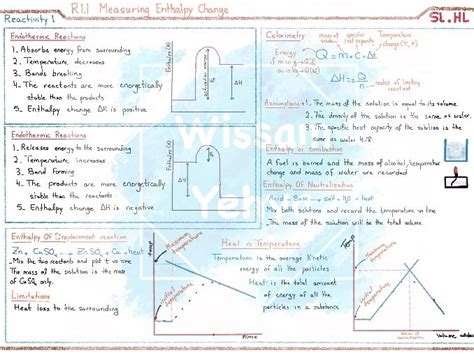 R1.1 Measuring Enthalpy Change
Reactivity 1
SL.HL
Endothermic Reactions
1. Absorbs energy from the surrounding
2. Temperature decreases
3. Bonds breaking
4. The reactants are more energetically
stable than the products
5. Enthalpy change ΔH is positive
Enthalpy(H)
activation energy
ΔH
Endothermic Reactions
1. Releases energy to the surrounding
2. Temperature increases
3. Bond forming
4. The products are more energetically
stable than the reactants
5. Enthalpy change ΔH is negative
Enthalpy(H)
ΔH
Calorimetry
mass of water
specific heat capacity
Temperature change (°C, K)
Energy
Q = m·C·ΔT
ΔH = Q/n
moles of limiting reactant
Assumptions: 1. The mass of the solution is equal to its volume.
2. The density of the solution is the same as water.
3. The specific heat capacity of the solution is the
same as water 4.18
Enthalpy of combustion
A fuel is burned and the mass of alcohol, temperature
change and mass of water are recorded
Enthalpy Of Neutralization
Acid + Base → salt + H₂O + heat
Mix both solutions and record the temperature
The mass of the solution will be the total volume.
Wissal
Enthalpy Of Displacement reaction
Zn + CuSO₄ → Zn SO₄ + Cu + heat
- Mix the two reactants and plot
The mass of the solution is the mass
of CuSO₄ only.
Limitations
Heat loss to the surrounding
temp
Maximum temperature
initial temperature
time
Heat ≠ Temperature
Temperature is the average kinetic
energy of all the particles
Heat is the total amount
of energy of all the
particles in a substance
Temp
Maximum temperature
initial temperature
Volume added